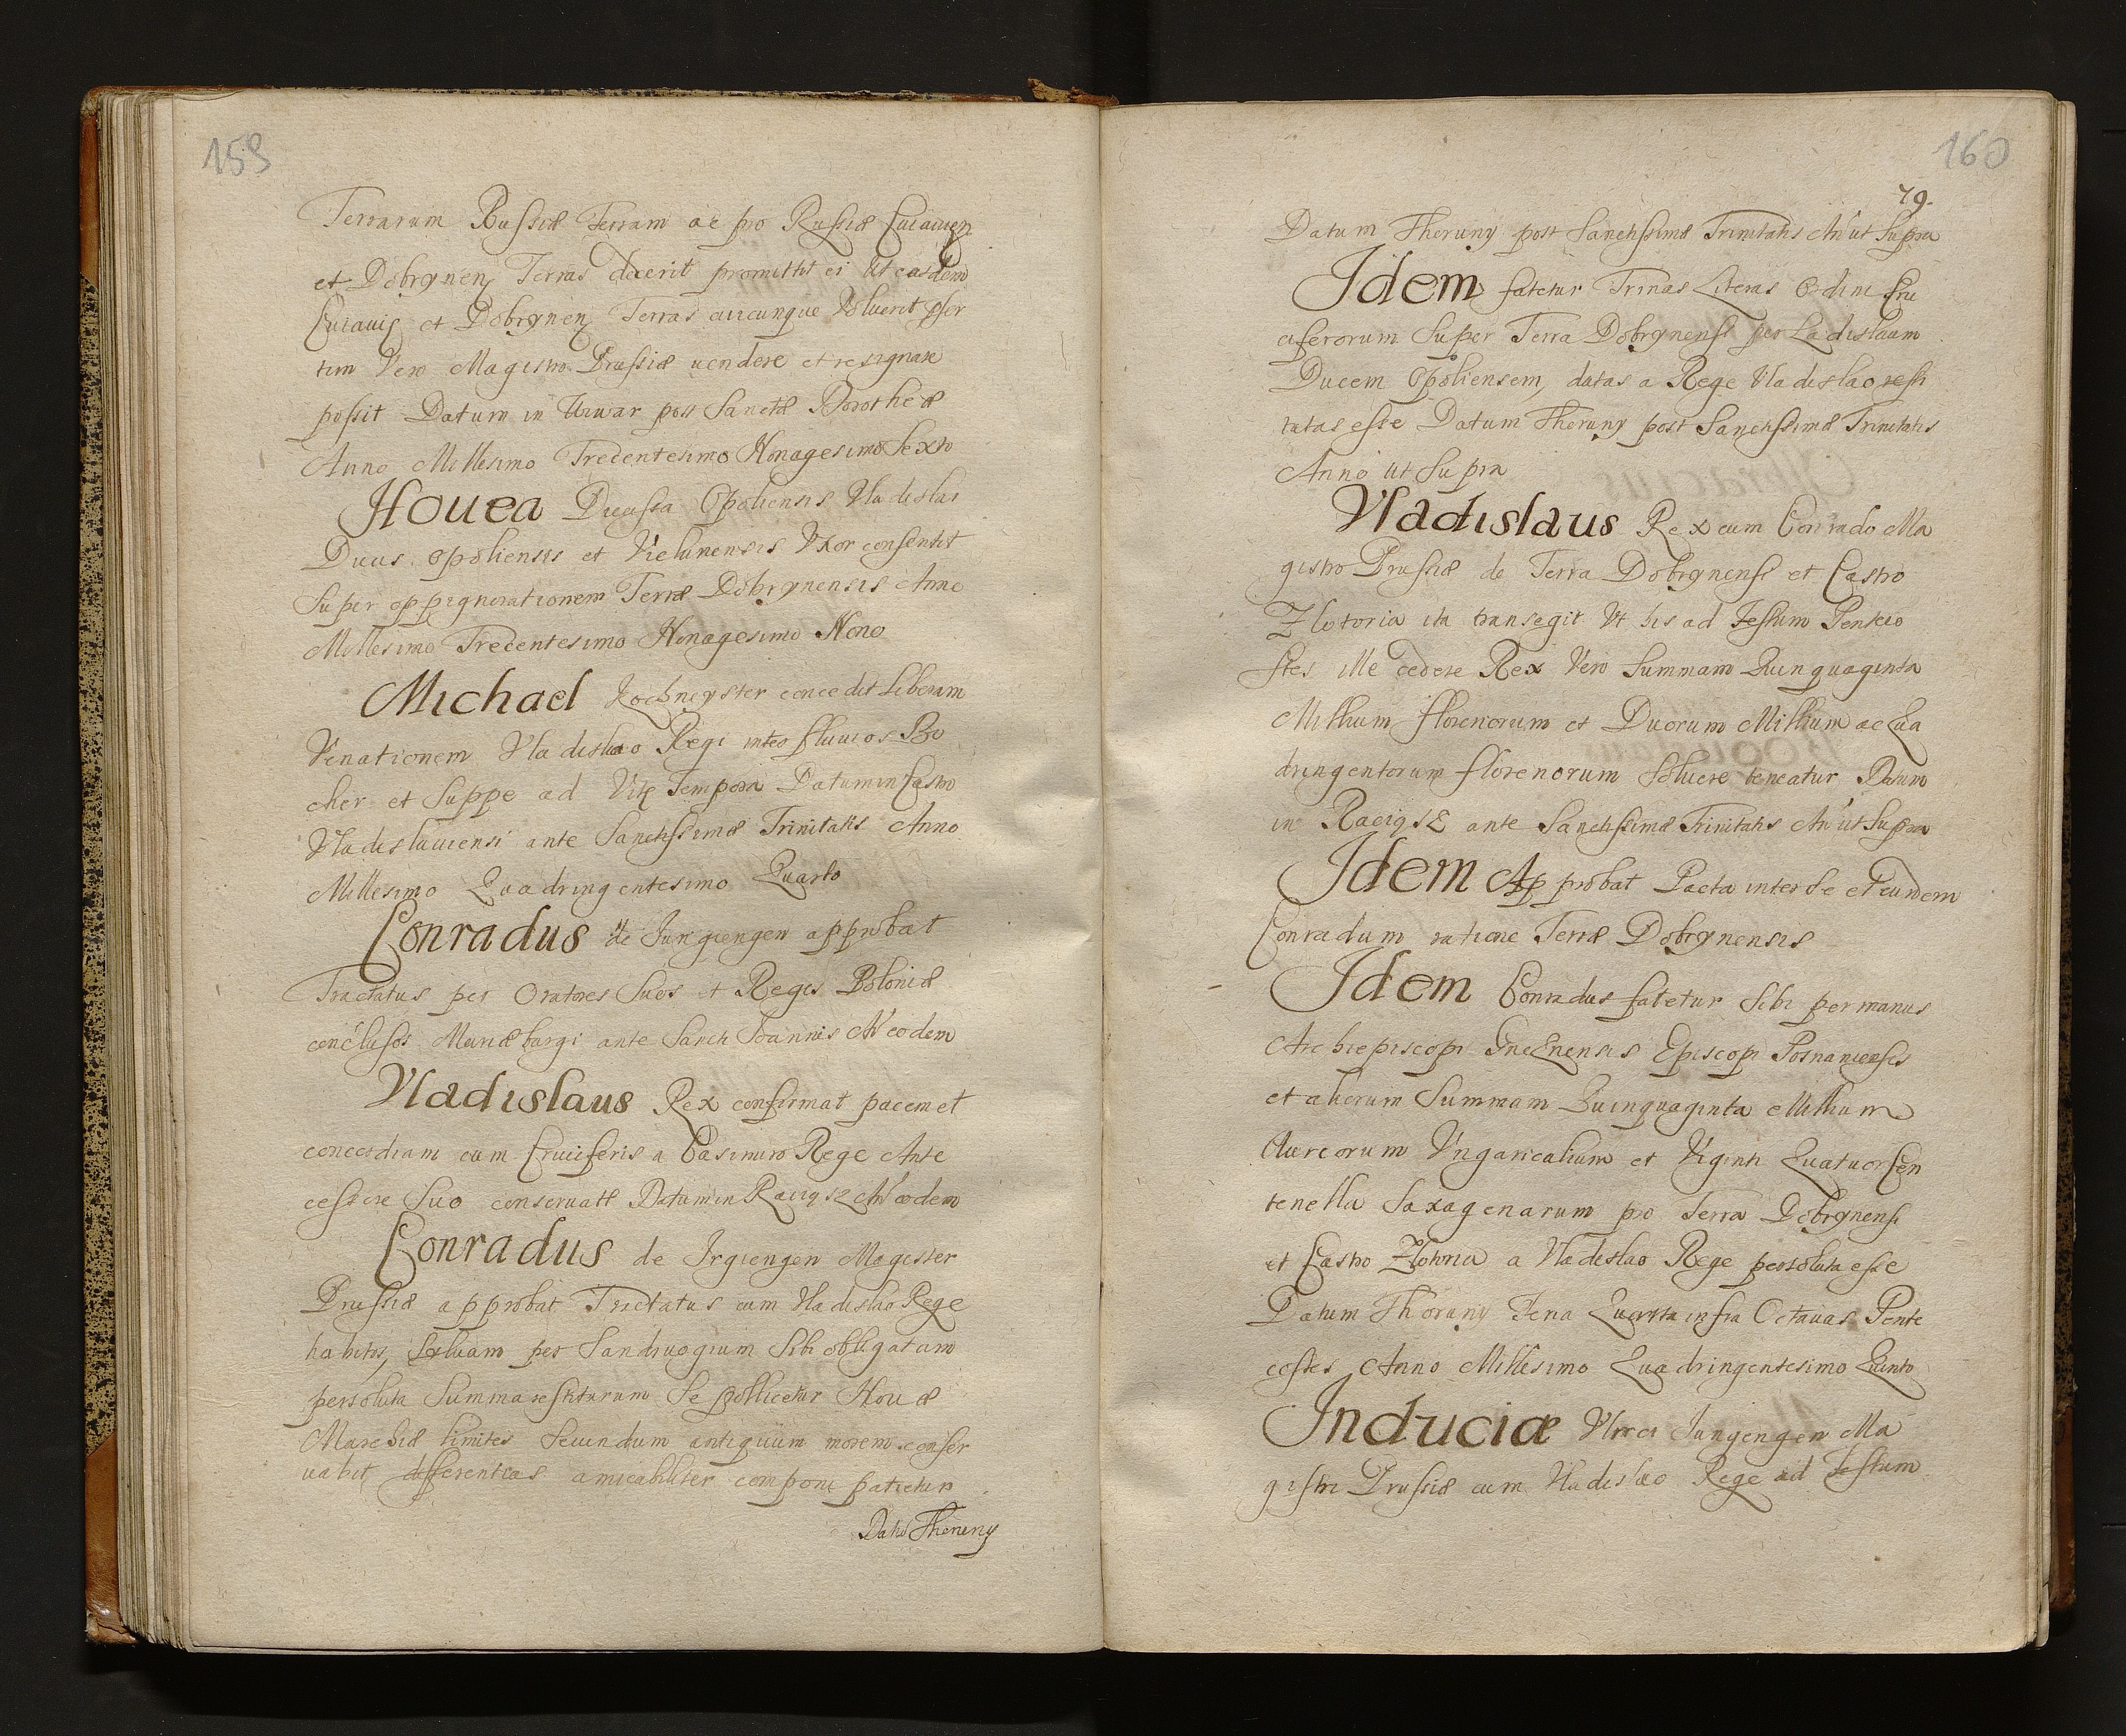 159
Terrarum Russiæ Terram ac pro Russiæ Cuiauien
et Dobrynen Terras dederit promittit ei Ut easdem
Cuiauię et Dobrynen Terras cuicunque Voluerit
tim Vero Magistro Prussiæ uendere et resignare
possit Datum in Uiwar post Sanctæ Dorotheæ
Anno Millesimo Tredentesimo Nonagesimo Sexto
Houea Ducissa Opoliensis Vladislai
Ducis Opoliensis et Vielunensis Vxor consentit
Super oppignerationem Terræ Dobrynensis Anno
Millesimo Tredentesimo Nonagesimo Nono
Michael Kochmeyster concedit Liberam
Venationem Vladislao Regi inter fluuios Bo
cher et Suppe ad Vitę Tempora Datum in Castro
Vladislauiensi ante Sanctissimæ Trinitatis Anno
Millesimo Quadringentesimo Quarto
Conradus de Jungiengen approbat
Tractatus per Oratores Suos et Reges Poloniæ
conclusos Mariæburgi ante Sancti Joannis An eodem
Vladislaus Rex confirmat pacem et
concordiam cum Cruciferis a Casimiro Rege Ante
cessore Suo conseruatæ Datum in Raciąsz An eodem
Conradus de Irgiengen Magister
Prussiæ approbat Tractatus cum Vladislao Rege
habitos, Siluam per Sandiuogium Sibi obligatam
persoluta Summa restiturum Se pollicetur Nouæ
Marchiæ limites Secundum antiquum morem conser
uabit, differentias amicabiliter componi patietur
Datū Thoruny
160
79.
Datum Thoruny post Sanctissimæ Trinitatis An ut Supra
Idem fatetur Trinas Literas Ordini Cru
ciferorum Super Terra Dobrynensi per Ladislaum
Ducem Opoliensem, datas a Rege Vladislao resti
tutas esse Datum Thoruny post Sanctissimæ Trinitatis
Anno ut Supra
Vladislaus Rex cum Conrado Ma
gistro Prussiæ de Terra Dobrynensi et Castro
Zlotoria ita transegit Vt his ad Festum Penteco
stes ille cedere Rex Vero Summam Quinquaginta
Millium florenorum et Duorum Millium ac Qua
dringentorum florenorum Soluere teneatur Datum
in Raciąsz ante Sanctissimæ Trinitatis An ut Supra
Idem Approbat Pacta inter Se et eundem
Conradum ratione Terræ Dobrynensis
Idem Conradus fatetur Sibi per manus
Archiepiscopi Gneznensis Episcopi Posnaniensis
et aliorum Summam Quinquaginta Millium
Aureorum Vngaricalium et Viginti Quatuor Cen
tenella Saxagenarum pro Terra Dobrynensi
et Castro Zlotoria a Vladislao Rege persoluta esse
Datum Thoruny Feria Quarta infra Octauas Pente
costes Anno Millesimo Quadringentesimo Quinto
Induciæ Vlrici Jungengen Ma
gistri Prussiæ cum Vladislao Rege ad Festum